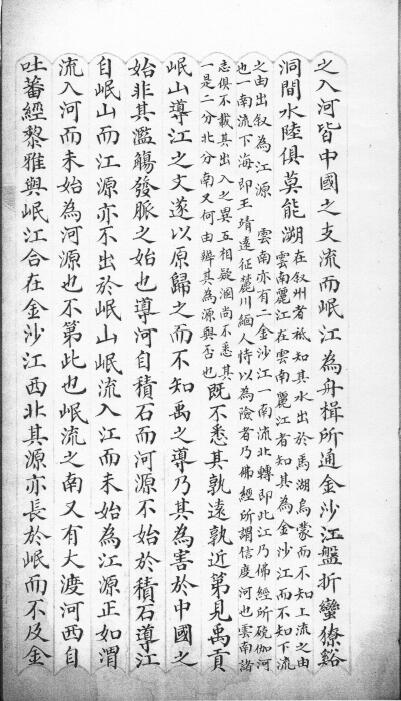 之入河皆中國之支流而岷江為舟楫所通金沙江盤折蠻獠谿
洞間水陸俱莫能溯
在叙州者秪知其水出於馬湖烏蒙而不知上流之由
雲南麗江在雲南麗江者知其為金沙江而不知下流
之由出叙為江源 雲南亦有二金沙江一南流北轉即此江乃佛經所殑伽河
也一南流下海即王靖遠征麓川緬人恃以為險者乃佛經所謂信度河也雲南諸
志俱不載其出入之異互相疑溷尚不悉其
一是二分北分南又何由辨其為源與否也
既不悉其孰遠孰近第見禹貢
岷山導江之文遂以原歸之而不知禹之導乃其為害於中國之
始非其濫觴發脈之始也導河自積石而河源不始於積石導江
自岷山而江源亦不出於岷山岷流入江而未始為江源正如渭
流入河而未始為河源也不第此也岷流之南又有大渡河西自
吐蕃經黎雅與岷江合在金沙江西北其源亦長於岷而不及金